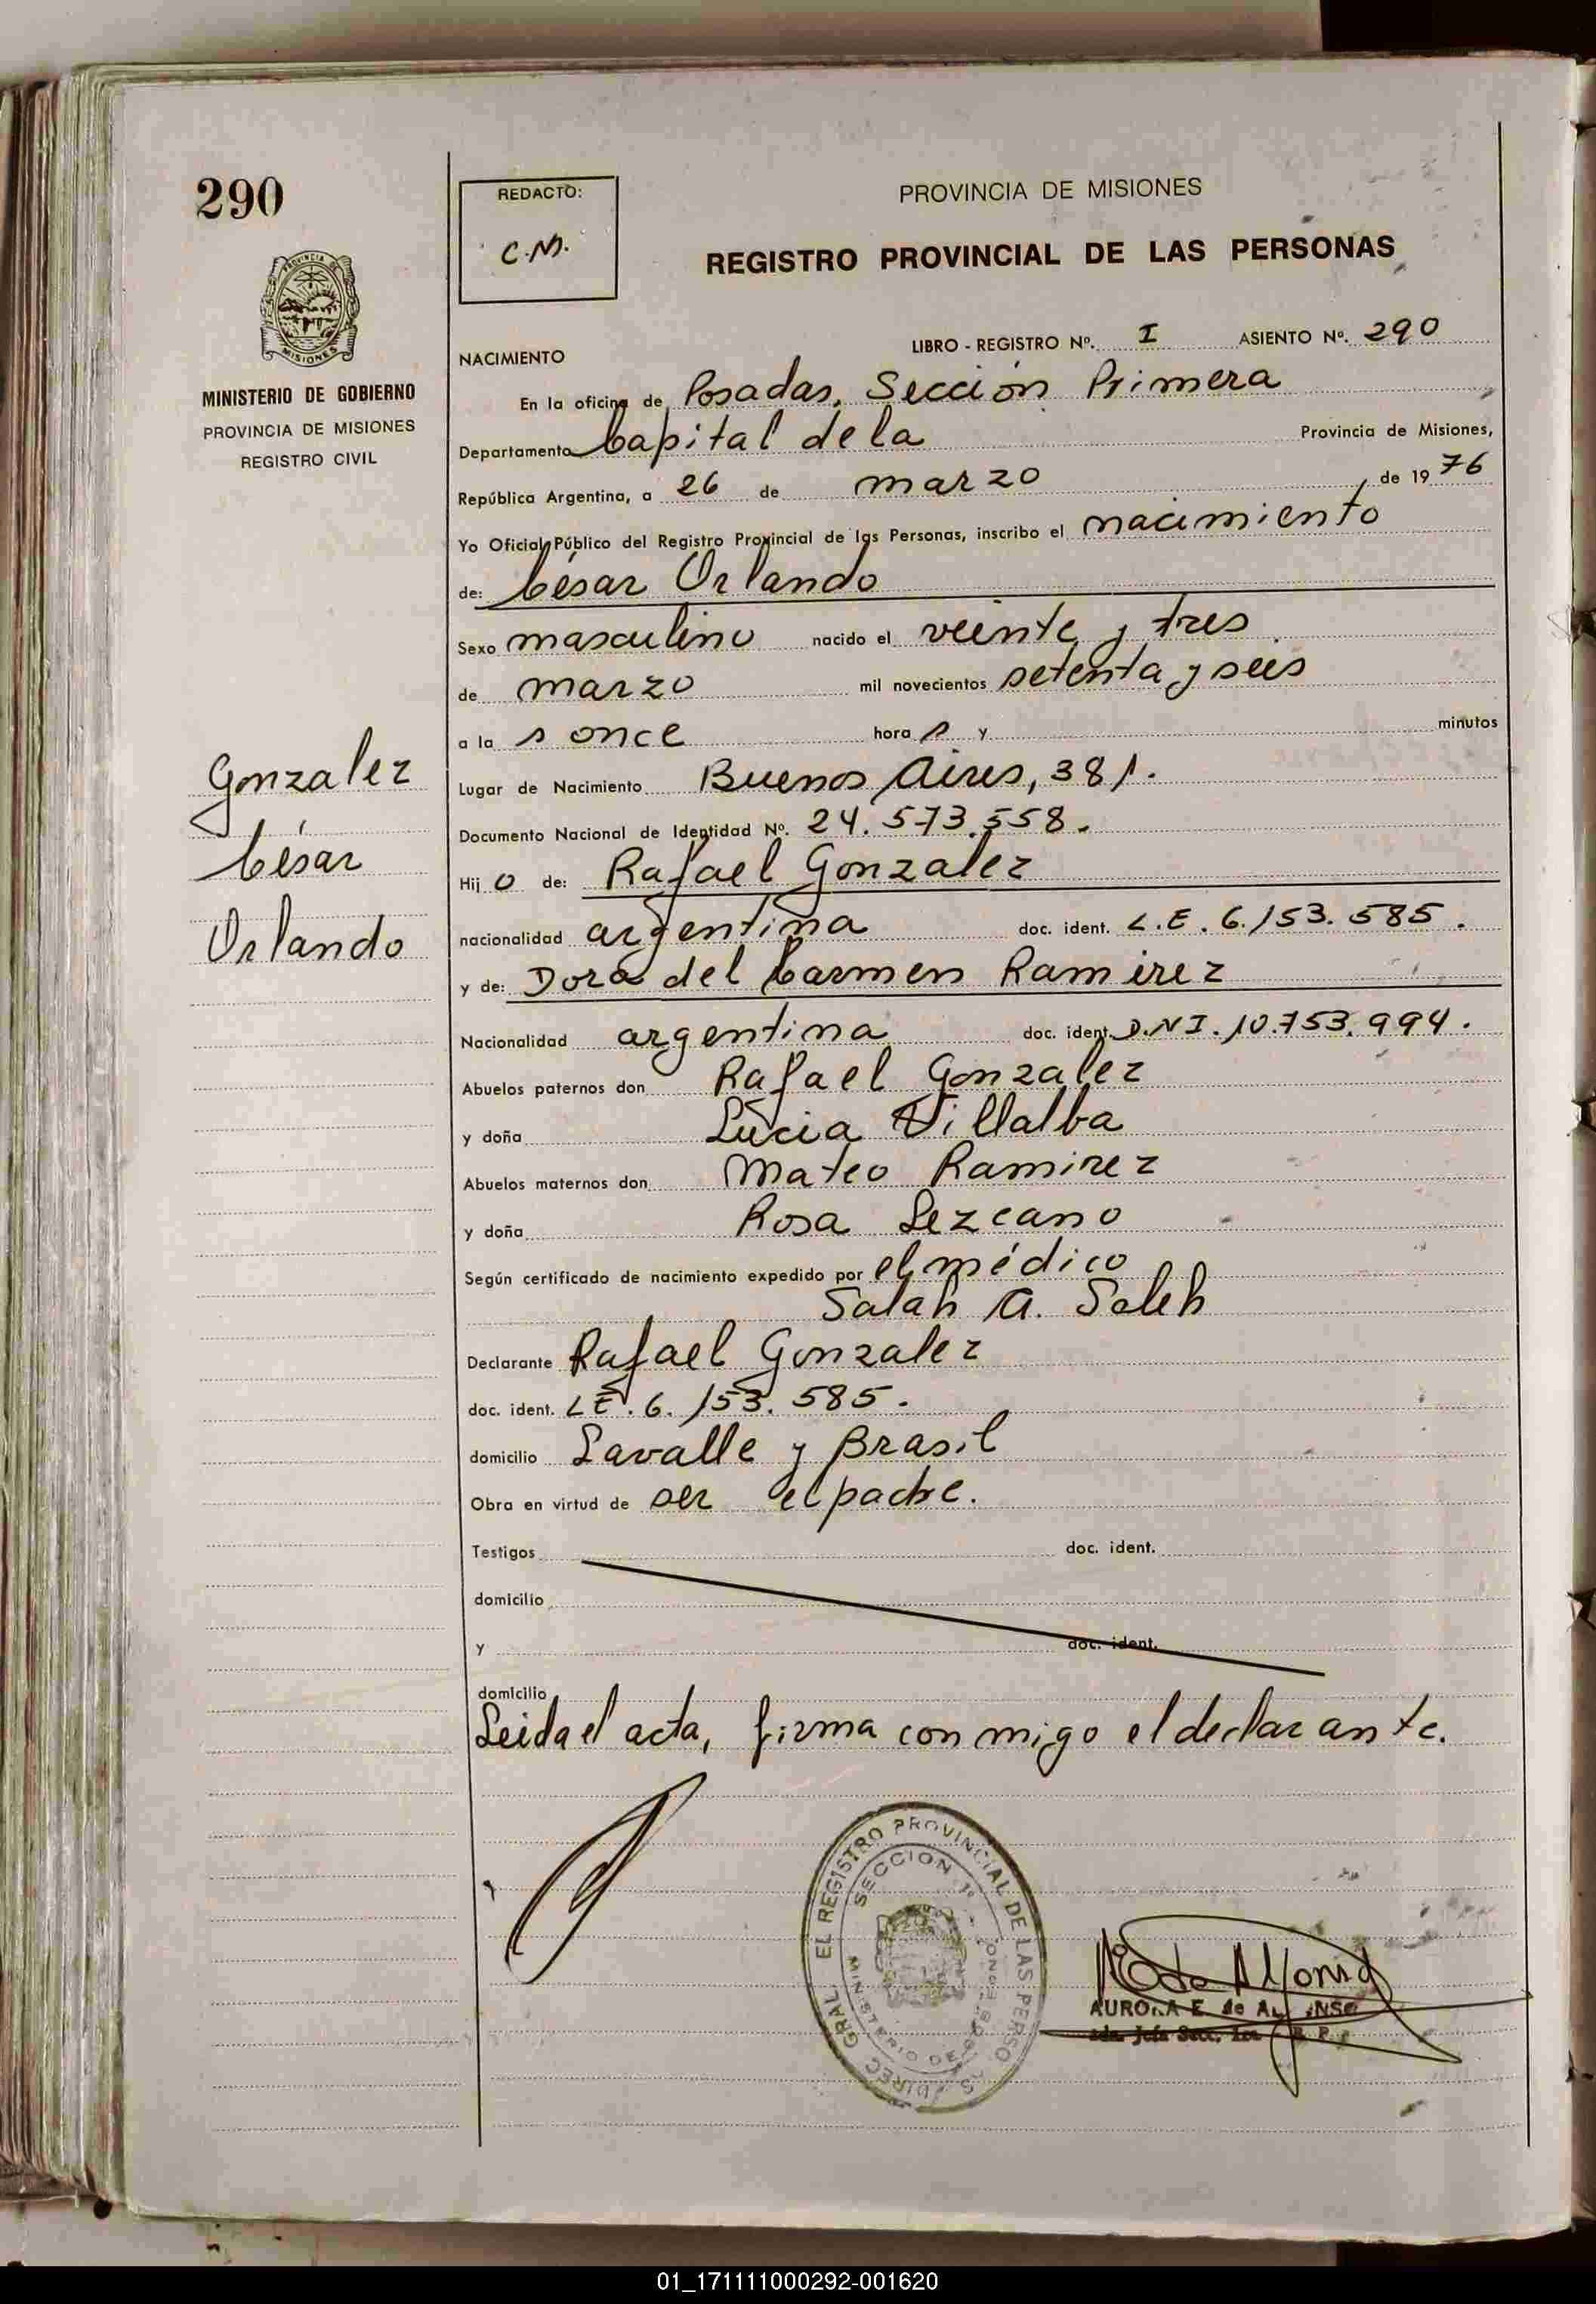 290
PROVINCIA DE
MISIONES
MINISTERIO DE GOBIERNO
PROVINCIA DE MISIONES
REGISTRO CIVIL
Gonzalez
César
Orlando
REDACTO:
C.M.
PROVINCIA DE MISIONES
REGISTRO PROVINCIAL DE LAS PERSONAS
NACIMIENTO LIBRO - REGISTRO Nº. I ASIENTO Nº. 290
En la oficina de Posadas, Sección Primera
Departamento Capital de la Provincia de Misiones,
República Argentina, a 26 de marzo, de 1976
Yo Oficial Público del Registro Provincial de las Personas, inscribo el nacimiento
de: César Orlando
Sexo masculino nacido el veinte y tres
de marzo mil novecientos setenta y seis
a la s once hora s y minutos
Lugar de Nacimiento Buenos Aires, 381.
Documento Nacional de Identidad Nº. 24.573.558.
Hij o de: Rafael Gonzalez
nacionalidad argentina doc. ident. L.E. 6.153.585.
y de: Dora del Carmen Ramirez
Nacionalidad argentina doc. ident. D.N.I. 10.753.994.
Abuelos paternos don Rafael Gonzalez
y doña Lucia Villalba
Abuelos maternos don Mateo Ramirez
y doña Rosa Lezcano
Según certificado de nacimiento expedido por el médico
Salah A. Saleh
Declarante Rafael Gonzalez
doc. ident. L.E. 6.153.585.
domicilio Lavalle y Brasil
Obra en virtud de ser el padre.
Testigos doc. ident.
domicilio
y doc. ident.
domicilio
Leida el acta, firma conmigo el declarante.
DIREC. GRAL. EL REGISTRO PROVINCIAL DE LAS PERSONAS
SECCION 1º
MINISTERIO DE GOBIERNO
AURORA E. de ALFONSO
01_171111000292-001620